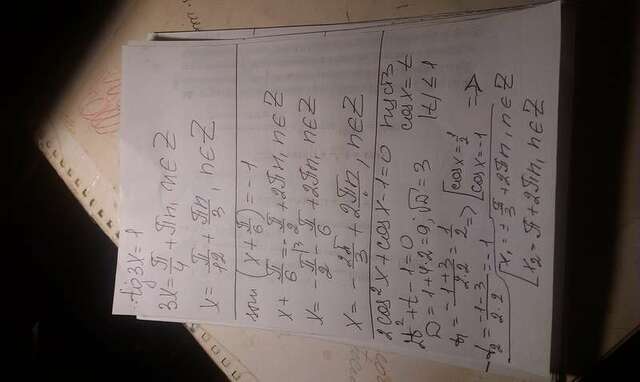 tg3x=1
3x=π/4+πn, n∈Z
x=π/12+πn/3, n∈Z
sin(x+π/6)=-1
x+π/6=-π/2+2πn, n∈Z
x=-π/2-π/6+2πn, n∈Z
x=-2π/3+2πn, n∈Z
2cos²x+cosx-1=0 пусть
cosx=t
2t²+t-1=0 |t|≤1
D=1+4·2=9; √D=3
t₁=(-1+3)/(2·2)=1/2 => [cosx=1/2
t₂=(-1-3)/(2·2)=-1 [cosx=-1 =>
[x₁=±π/3+2πn, n∈Z
[x₂=π+2πn, n∈Z